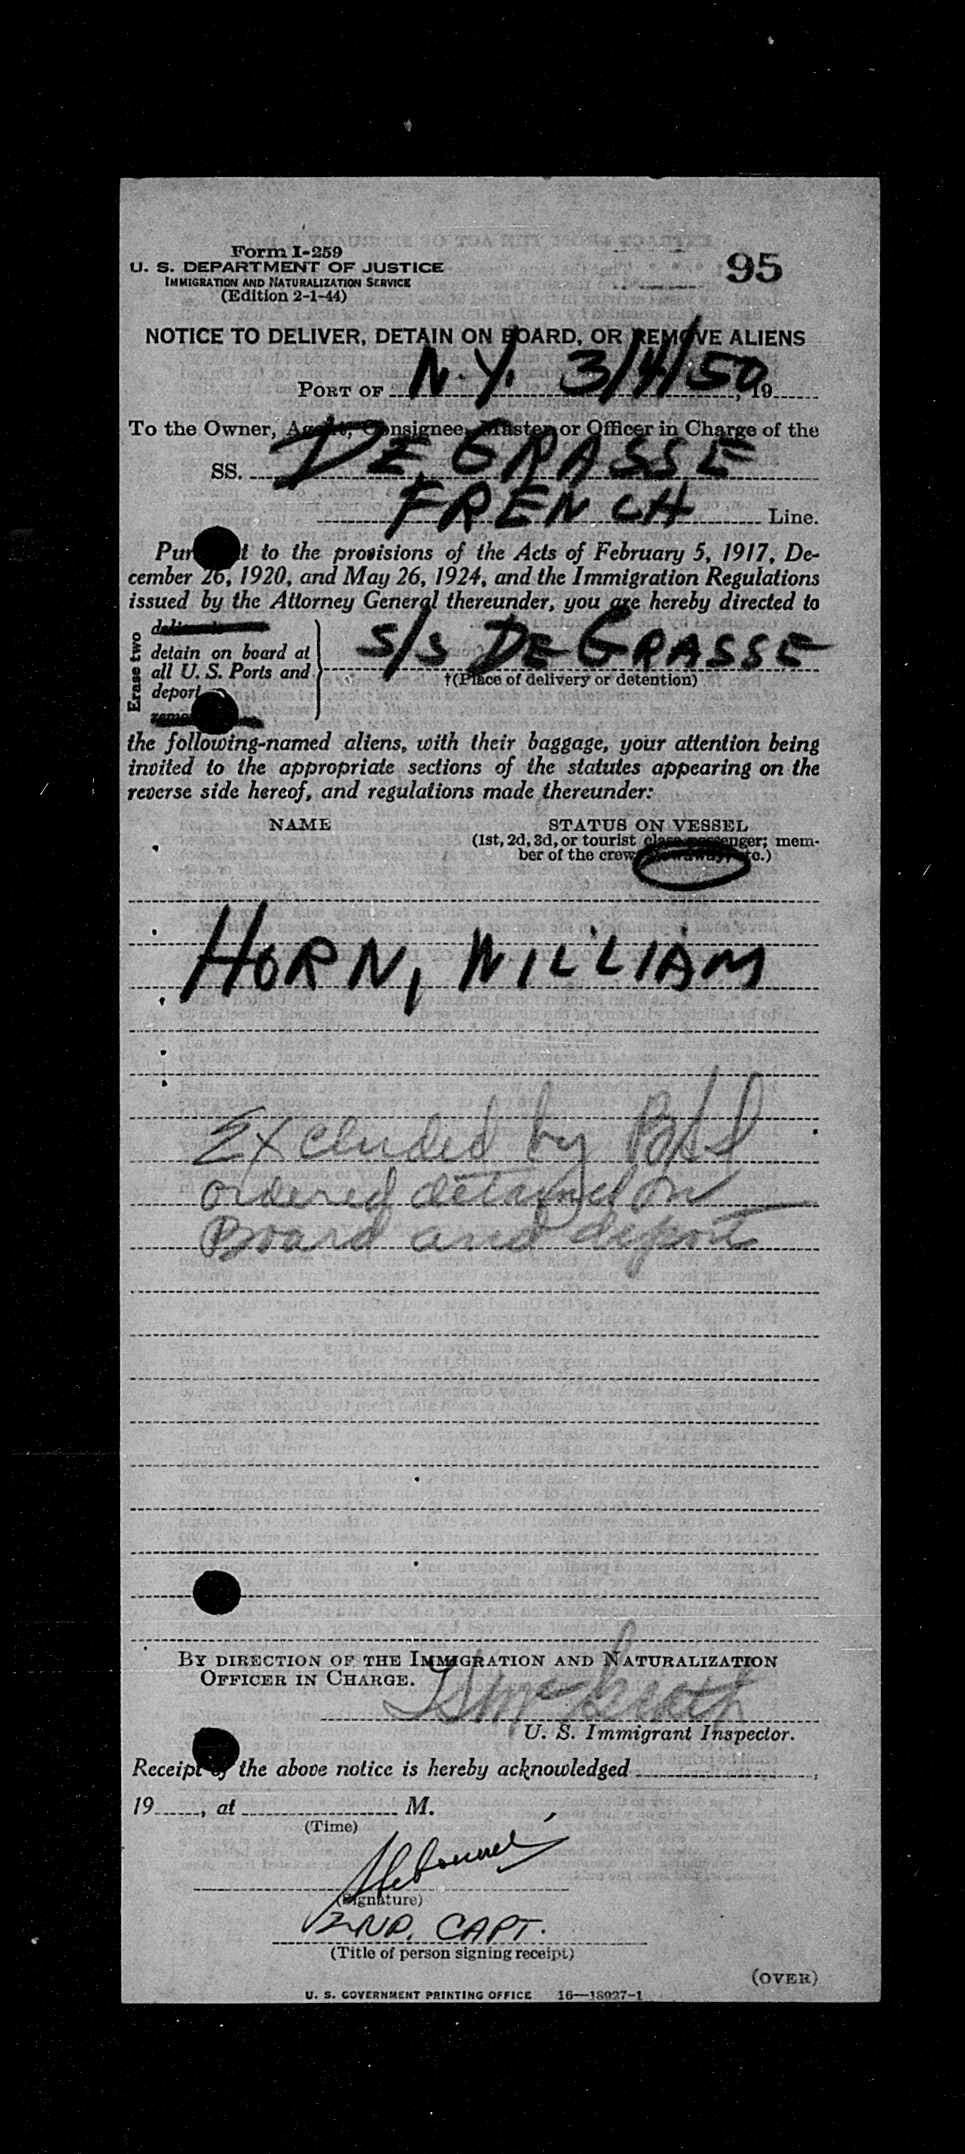 Form I-259
U. S. DEPARTMENT OF JUSTICE
IMMIGRATION AND NATURALIZATION SERVICE
(Edition 2-1-44)
95
NOTICE TO DELIVER, DETAIN ON BOARD, OR REMOVE ALIENS
PORT OF N.Y. 3/4/50, 19
To the Owner, Agent, Consignee, Master or Officer in Charge of the
SS. DE GRASSE
FRENCH Line.
Pursuant to the provisions of the Acts of February 5, 1917, De-
cember 26, 1920, and May 26, 1924, and the Immigration Regulations
issued by the Attorney General thereunder, you are hereby directed to
Erase two
detain on board at
all U. S. Ports and
deport
S/S DE GRASSE
†(Place of delivery or detention)
the following-named aliens, with their baggage, your attention being
invited to the appropriate sections of the statutes appearing on the
reverse side hereof, and regulations made thereunder:
NAME STATUS ON VESSEL
(1st, 2d, 3d, or tourist class passenger; mem-
ber of the crew, stowaway, etc.)
HORN, WILLIAM
Excluded by BSI
ordered detained on
Board and deport
BY DIRECTION OF THE IMMIGRATION AND NATURALIZATION
OFFICER IN CHARGE.
U. S. Immigrant Inspector.
Receipt of the above notice is hereby acknowledged
19, at M.
(Time)
(Signature)
2ND. CAPT.
(Title of person signing receipt)
(OVER)
U. S. GOVERNMENT PRINTING OFFICE 16—18927-1